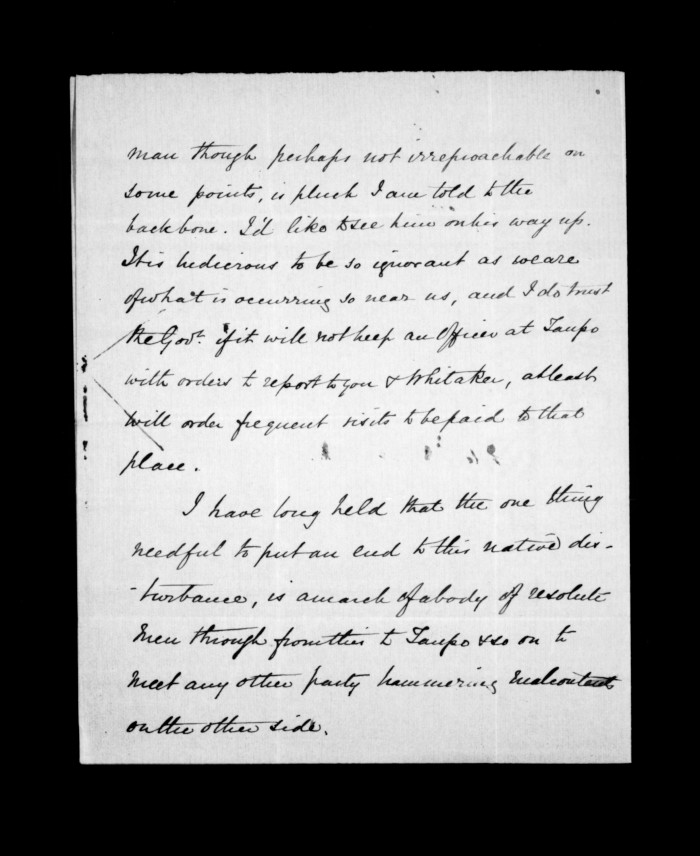 man though perhaps not irreproachable on
some points, is pluck I am told to the
backbone. I'd like to see him on his way up.
It is ludicrous to be so ignorant as we are
of what is occurring so near us, and I do trust
the Govt. if it will not keep an Officer at Taupo
with orders to report to you & Whitaker, at least
will order frequent visits to be paid to that
place.
I have long held that the one thing
needful to put an end to this native dis-
-turbance, is a march of a body of resolute
men through from this to Taupo & so on to
meet any other party hammering malcontents
on the other side.